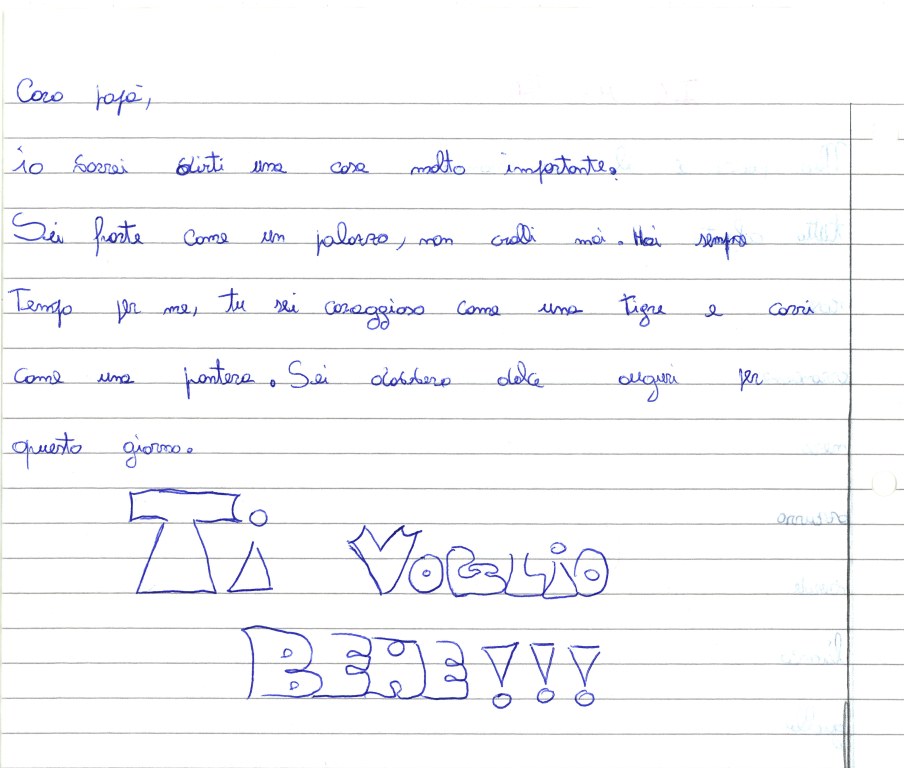 Caro papà,
io vorrei dirti una cosa molto importante.
Sei forte come un palazzo, non crolli mai. Hai sempre
Tempo per me, tu sei coraggioso come una tigre e corri
come una pantera. Sei davvero dolce auguri per
questo giorno.
Ti VOGLiO
BENE!!!